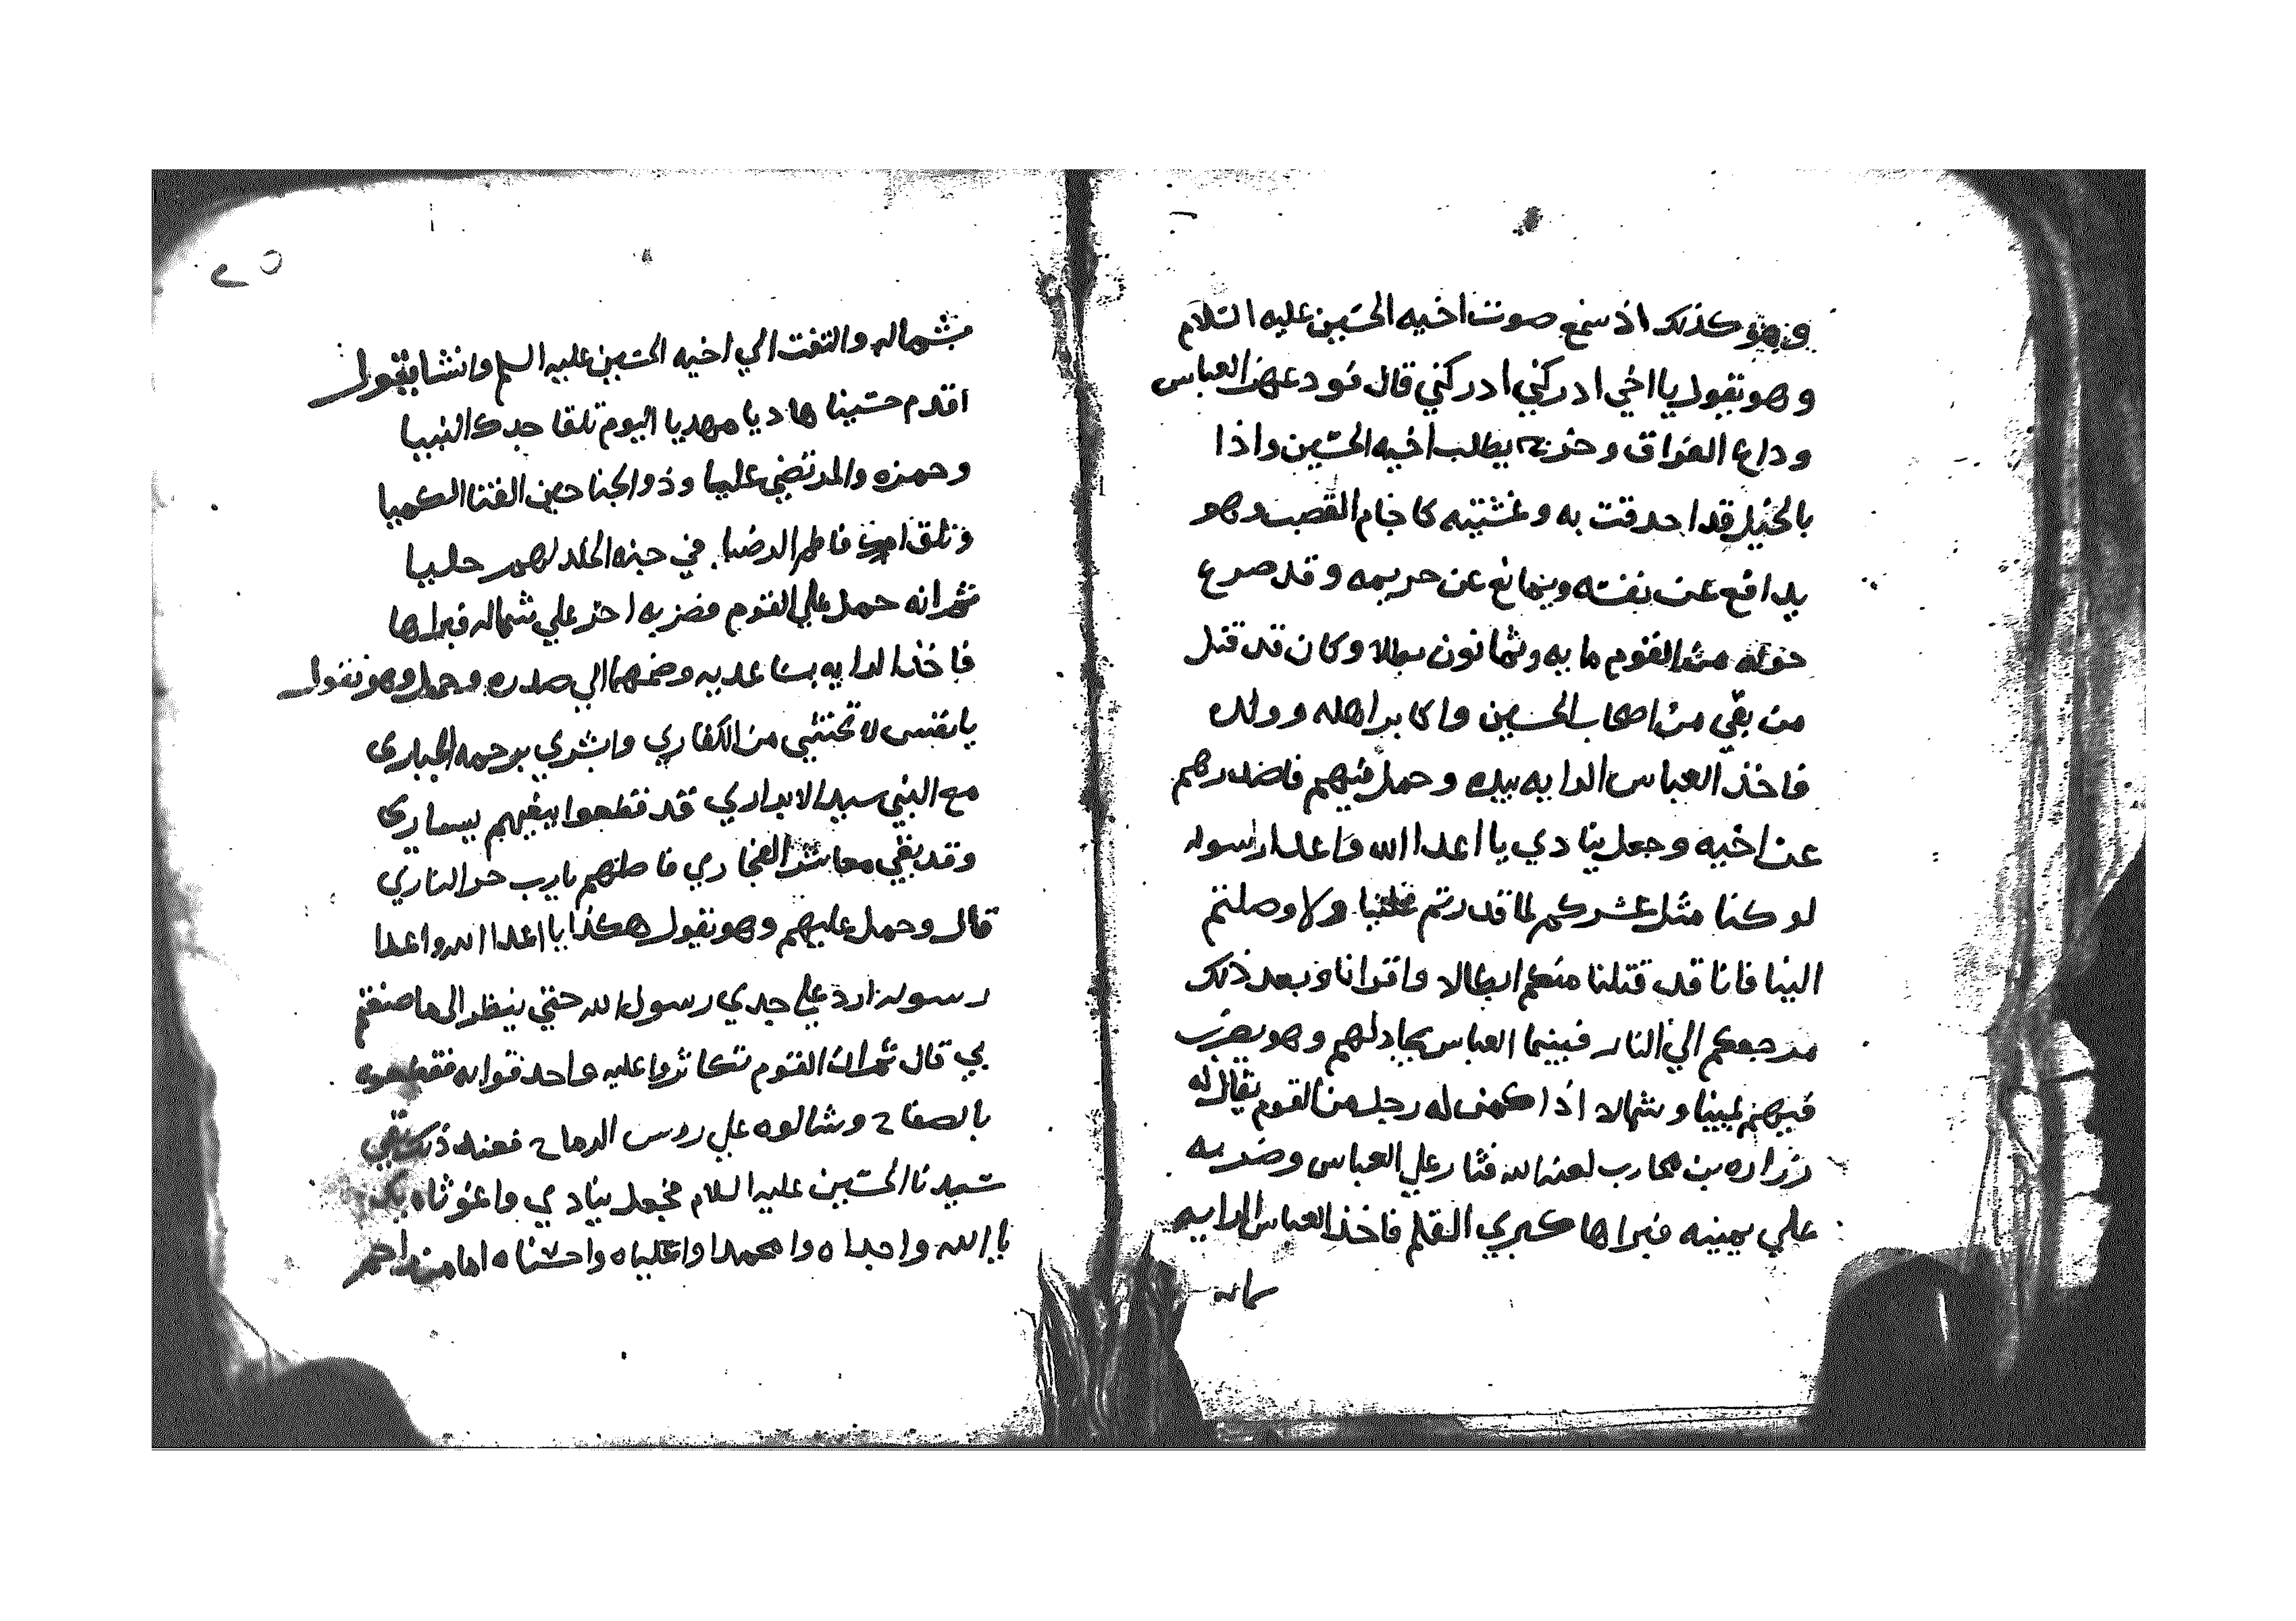 وهو كذلك اذ سمع صوت اخيه الحسين عليه السلام
وهو يقول يا اخي ادركني ادركني قال فودعهن العباس
وداع الفراق وخرج يطلب اخيه الحسين واذا
بالخيل قد احدقت به وغشيته كاجام القصب وهو
يدافع عن نفسه ويمانع عن حريمه وقد صرع
حوله من القوم مايه وثمانون بطلا وكان قد قتل
من بقي من اصحاب الحسين واكابر اهله وولده
فاخذ العباس الرايه بيده وحمل فيهم فاضدرهم
عن اخيه وجعل ينادي يا اعدا الله واعدا رسوله
لو كنا مثل عشركم لما قدرتم علينا ولا وصلتم
الينا فانا قد قتلنا منكم ابطالا واقرانا وبعد ذلك
مرجعكم الي النار فبينما العباس يجادلهم وهو يضرب
فيهم يمينا وشمالا اذا كمن له رجل من القوم يقال له
زراره بن محارب لعنه الله فثار علي العباس وضربه
علي يمينه فبراها كبري القلم فاخذ العباس الرايه
بشماله
بشماله والتفت الي اخيه الحسين عليه السلم وانشا يقول
اقدم حسينا هاديا مهديا اليوم تلقا جدك النبيا
وحمزه والمرتضي عليا وذو الجناحين الفتا الكميا
وتلق امك فاطم الرضيا في جنه الخلد لهم حليا
ثم انه حمل علي القوم فضربه اخر علي شماله فبراها
فاخذ الرايه بساعديه وضمها الي صدره وحمل وهو يقول
يا نفس لا تختشي من الكفاري وابشري برحمه الجباري
مع النبي سيد الابراري قد قطعوا ببغيهم يساري
وقد بغي معاشر الفجاري فاصلهم يارب حر الناري
قال وحمل عليهم وهو يقول هكذا يا اعدا الله واعدا
رسوله ارد علي جدي رسول الله حتي ينظر الي ما صنعتم
بي قال ثم ان القوم تكاثروا عليه واحدقوا به فقطعوه
بالصفاح وشالوه علي روس الرماح فعند ذلك بقي
سيدنا الحسين عليه السلام فجعل ينادي واغوثاه بك
يا الله واجداه وا محمدا واعلياه واحسناه اما من راحم